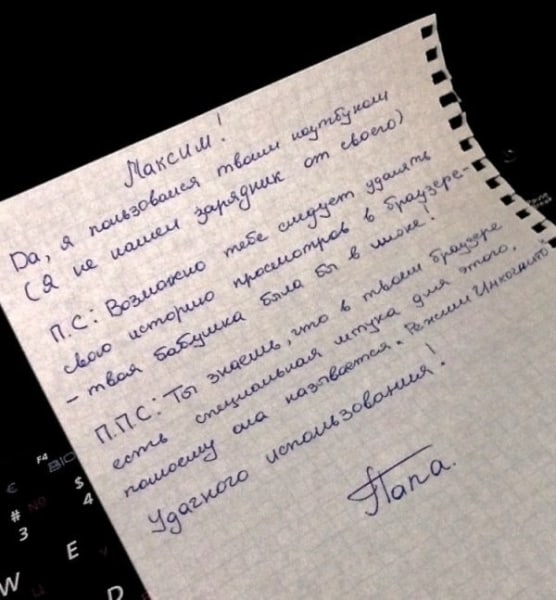 Максим!
Да, я пользовался твоим ноутбуком
(Я не нашел зарядник от своего)
П.С: Возможно тебе следует удалять
свою историю просмотров в браузере-
- твоя бабушка была бы в шоке!
П.П.С: Ты знаешь, что в твоем браузере
есть специальная штука для этого,
помоему она называется. Режим Инкогнито
Удачного использования!
Папа.
F4
€
$
4
#
3
W
E
D